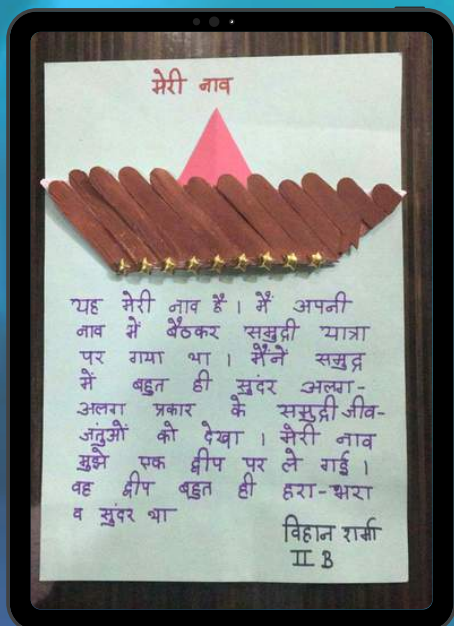 मेरी नाव
यह मेरी नाव है । मैं अपनी
नाव में बैठकर समुद्री यात्रा
पर गया था । मैंने समुद्र
में बहुत ही सुंदर अलग-
अलग प्रकार के समुद्री जीव-
जंतुओं को देखा । मेरी नाव
मुझे एक द्वीप पर ले गई ।
वह द्वीप बहुत ही हरा-भरा
व सुंदर था
विहान शर्मा
II B